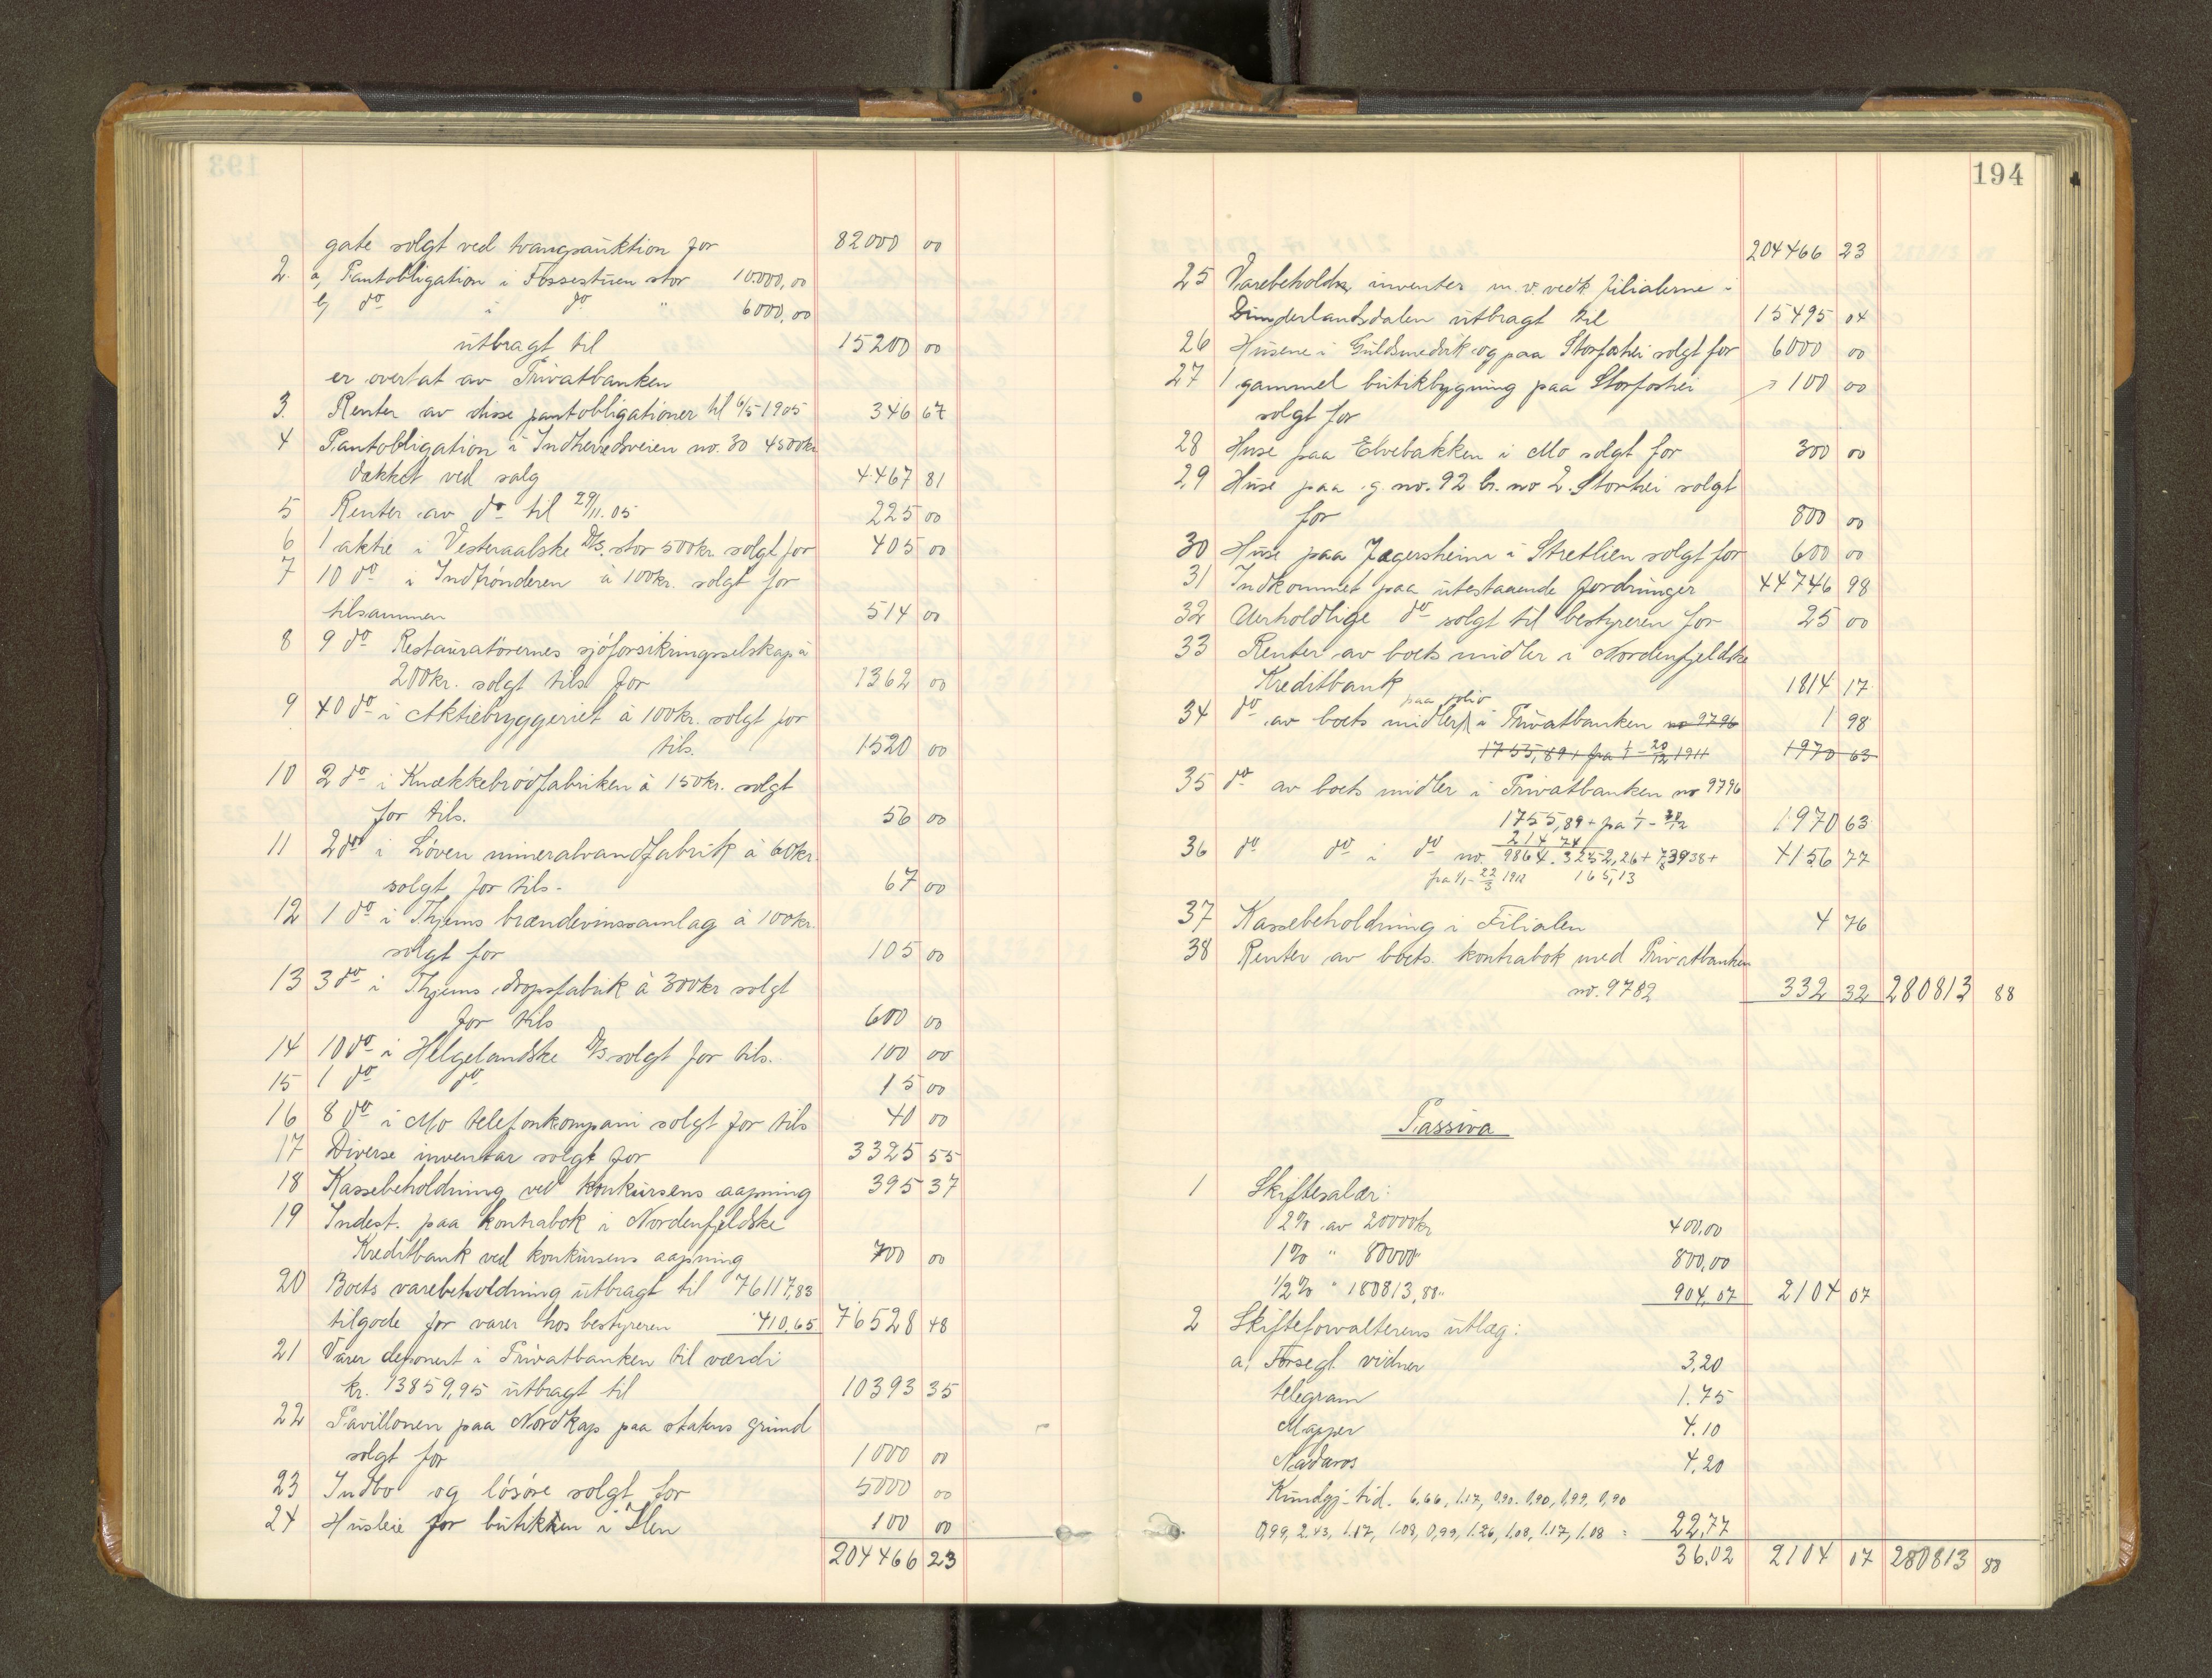 193
gate solgt ved tvangsauktion for 82000 00
2. a, Pantobligation i Fossestuen stor 10.000,00
b, do i do " 6000,00
utbragt til 15200 00
er overtat av Privatbanken
3. Renter av disse pantobligationer til 6/5 1905 346 67
4 Pantobligation i Indherredsveien no. 30 4500kr
dækket ved salg 4467 81
5 Renter av do til 29/11.05 225 00
6 1 aktie i Vesteraalske D/s. stor 500kr. solgt for 405 00
7 10 do i Indtrönderen à 100kr. solgt for
tilsammen 514 00
8 9 do Restauratörernes sjöforsikringsselskap à
200kr. solgt tils. for 1362 00
9 40 do i Aktiebryggeriet à 100kr. solgt for
tils. 1520 00
10 2 do i Knækkebrödfabriken à 150kr. solgt
for tils. 56 00
11 2 do i Löven mineralvandfabrik à 60kr.
solgt for tils. 67 00
12 1 do i Thjems brændevinssamlag à 100kr.
solgt for 105 00
13 3 do i Thjems dropsfabrik à 300kr solgt
for tils 600 00
14 10 do i Helgelandske D/s solgt for tils. 100 00
15 1 do do 15 00
16 8 do i Mo telefonkompani solgt for tils 40 00
17 Diverse inventar solgt for 3325 55
18 Kassebeholdning ved konkursens aapning 395 37
19 Indest. paa kontrabok i Nordenfjeldske
Kreditbank ved konkursens aapning 700 00
20 Boets varebeholdning utbragt til 76117,83
tilgode for varer hos bestyreren 410,65 76528 48
21 Varer deponert i Privatbanken til værdi
kr. 13859,95 utbragt til 10393 35
22 Pavillonen paa Nordkap paa statens grund
solgt for 1000 00
23 Indbo og lösöre solgt for 5000 00
24 Husleie for butikken i Ilen 100 00
204466 23
194
204466 23
25 Varebeholdn, inventar m.v. vedk filialerne i
Dunderlandsdalen utbragt til 15495 04
26 Husene i Guldsmedvik og paa Storfoshei solgt for 6000 00
27 1 gammel butikbygning paa Storfoshei 100 00
solgt for
28 Huse paa Elvebakken i Mo solgt for 300 00
29 Huse paa g. no. 92 br. no 2. Storhei solgt
for 800 00
30 Huse paa Jægersheim i Stretlien solgt for 600 00
31 Indkommet paa utestaaende fordringer 44746 98
32 Uerholdlige do solgt til bestyreren for 25 00
33 Renter av boets midler i Nordenfjeldske
Kreditbank 1814 17
paa folio
34 do av boets midler i Privatbanken no 9796 1 98
1755,89 + fra 1/1 - 20/12 1911 1970 63
35 do av boets midler i Privatbanken no 9796
1755,89 + fra 1/1 - 20/12 1970 63
214 74
36 do do i do no. 9864. 3252,26 + 739 38 + 4156 77
fra 1/1 - 22/3 1912 165,13
37 Kassebeholdning i Filialen 4 76
38 Renter av boets kontrabok med Privatbanken
no. 9782 332 32 280813 88
Passiva
1 Skiftesalær:
2% av 20000kr 400,00
1% " 80000 " 800,00
1/2% " 180813,88 " 904,07 2104 07
2 Skifteforvalterens utlæg:
a, Forsegl. vidner 3,20
telegram 1.75
Mapper 4.10
Nidaros 4,20
Kundgj-tid. 6,66, 1.17, 0,90. 0,90, 0,99, 0,90
0,99, 2.43, 1.17, 1.08, 0,99, 1.26, 1.08, 1.17, 1.08 = 22,77
36,02 2104 07 280813 88